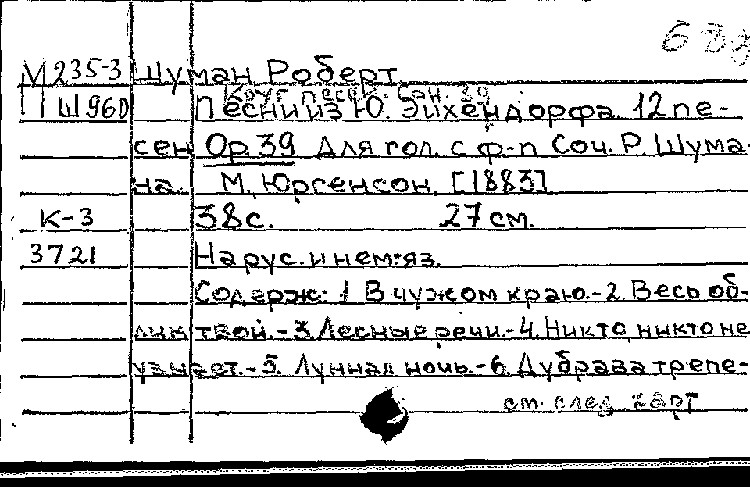 М235-3 Шуман Роберт.
Круг песен. Соч. 39
Ш960 Песни из Ю. Эйхендорфа. 12 пе-
сен Ор.39 Для гол. с ф-п Соч. Р. Шума-
на. М., Юргенсон, [1883]
К-3 38с. 27 см.
3721 На рус. и нем. яз.
Содерж: 1 В чужом краю.-2. Весь об-
лик твой.-3. Лесные речи.-4. Никто, никто не
узнает.-5. Лунная ночь.-6. Дубрава трепе-
см. след карт